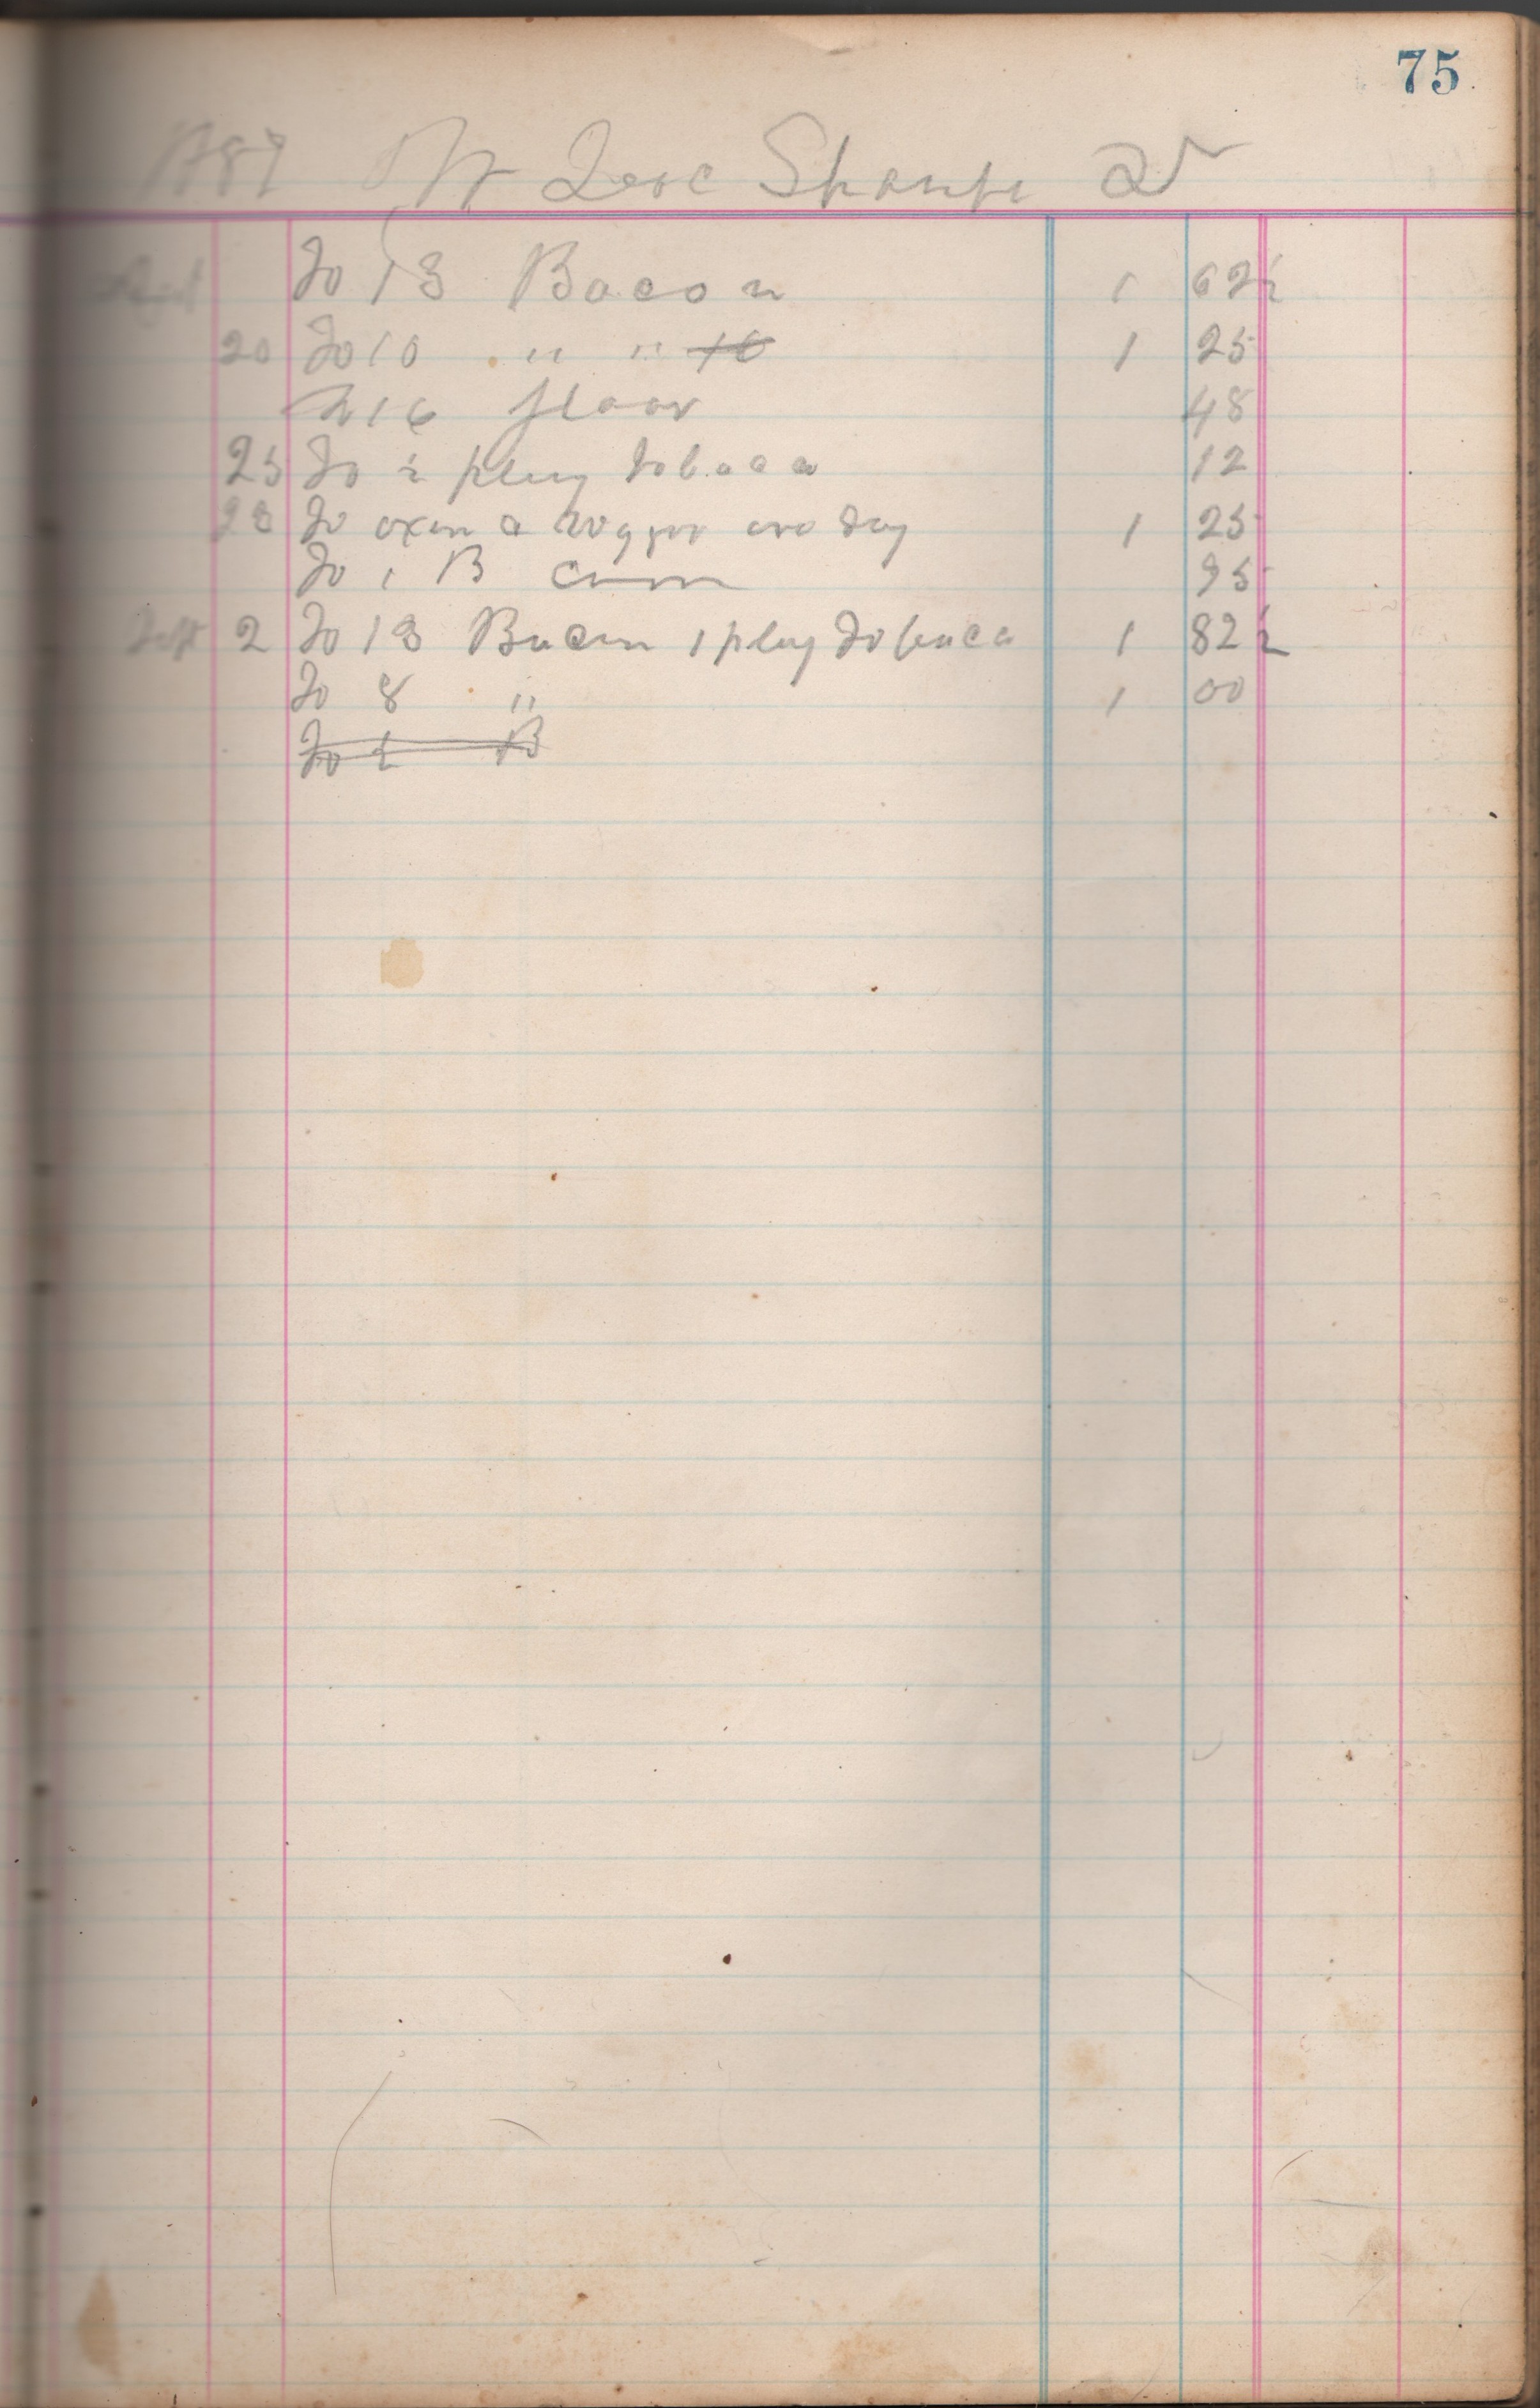 75
Sharpe Dr
To 13 Bacon 1 62½
20 To 10 " " 10 1 25
16 floor 48
25 To ½ plug tobaca 12
28 To oxen a waggon one day 1 25
To 1 B corn 95
Sept 2 To 13 Bacon 1 plug Tobaca 1 82½
To 8 " 1 00
To 1 B